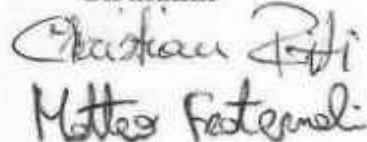 Christian Pitti
Matteo Fraternali